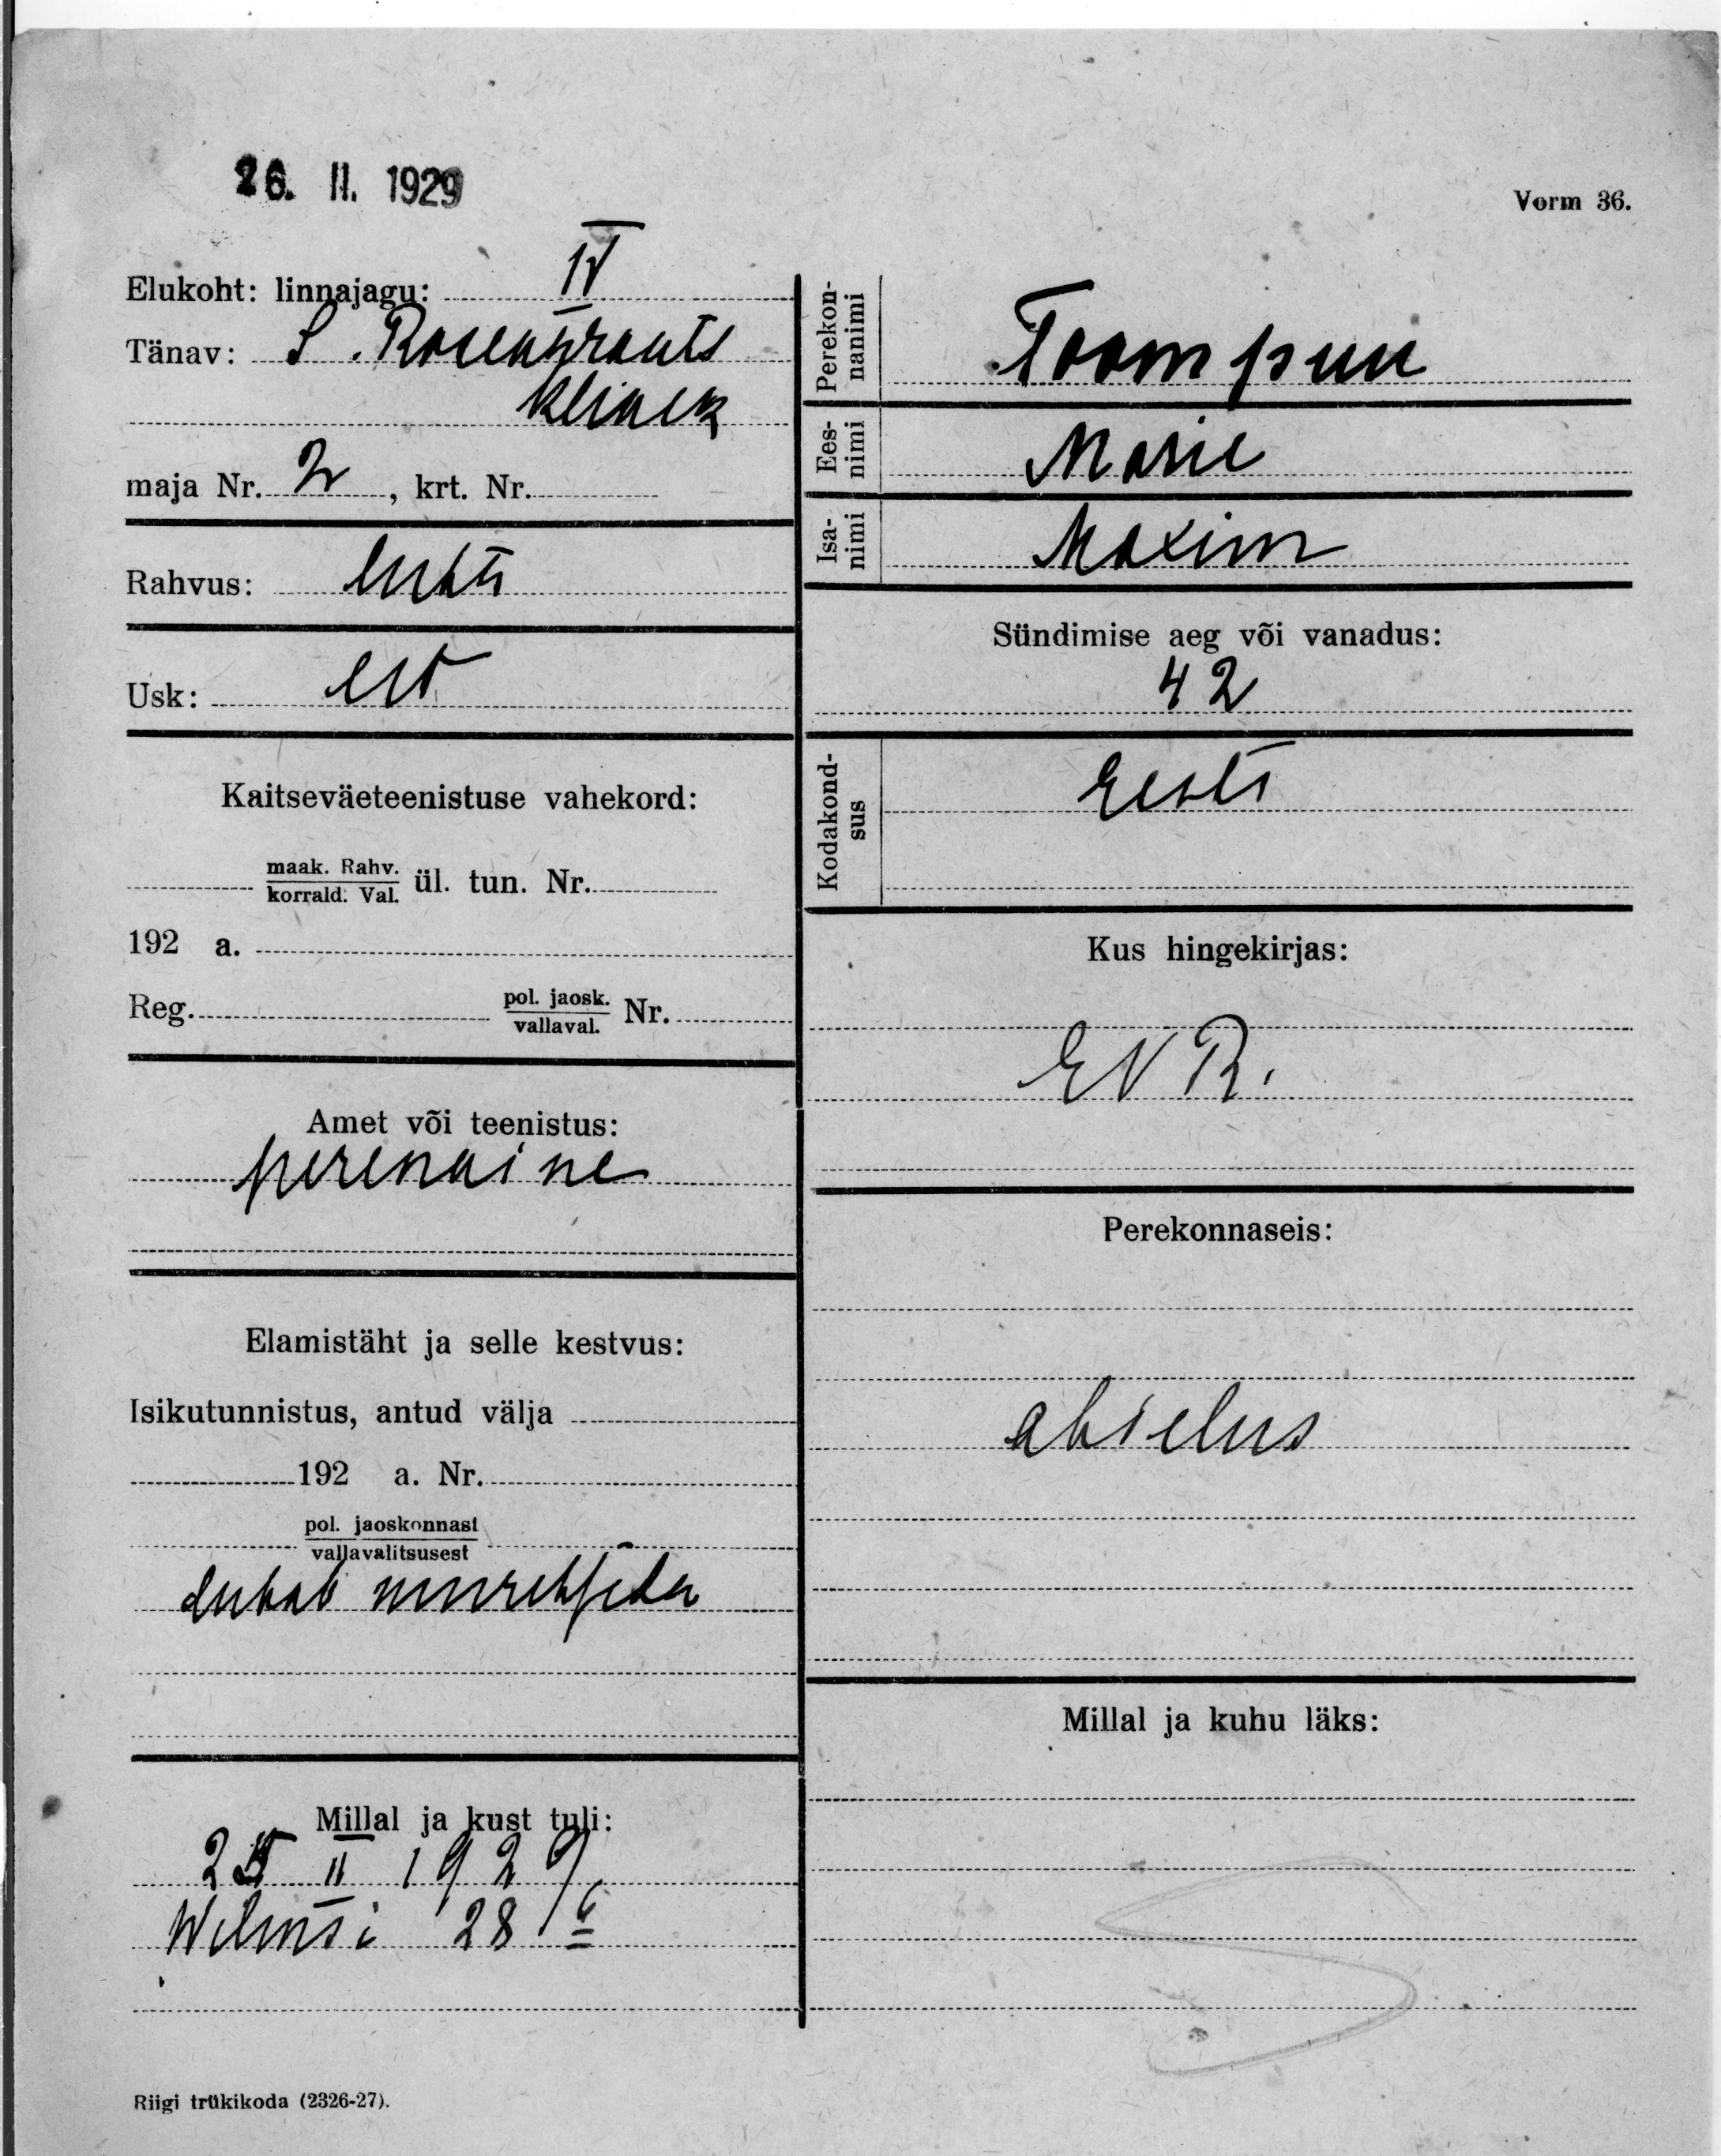 26. II. 1929
Vorm 36.
Elukoht: linnajagu: IV
Tänav: S. Rosenkrants
kliinik
maja Nr. 2, krt. Nr.
Rahvus:
Usk:
Kaitseväeteenistuse vahekord:
maak. Rahv.
korrald. Val. ül. tun. Nr.
192 a.
Reg. pol. jaosk. Nr.
vallaval.
Amet või teenistus:
perenaine
Elamistäht ja selle kestvus:
Isikutunnistus, antud välja
192 a. Nr.
pol. jaoskonnast
vallavalitsusest
lubab muretseda
Millal ja kust tuli:
II 1929
Wilmsi 28
Riigi trükikoda (2326-27).
Perekon-
nanimi
Toompuu
Ees-
nimi
Marie
Isa-
nimi
Maxim
Sündimise aeg või vanadus:
42
Kodakond-
sus
Eesti
Kus hingekirjas:
Perekonnaseis:
abielus
Millal ja kuhu läks: